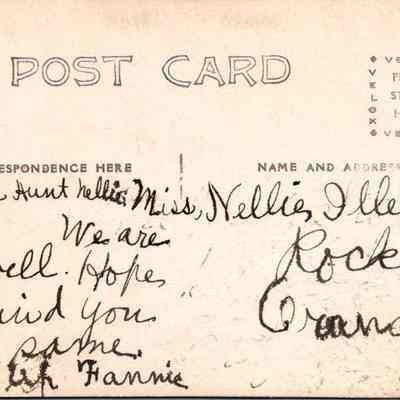 POST CARD
VE
VELOX
P
ST
H
VE
RESPONDENCE HERE
NAME AND ADDRESS
Aunt Nellie
We are
ell. Hope
ind you
same.
Fannie
Miss, Nellie Ille
Rock